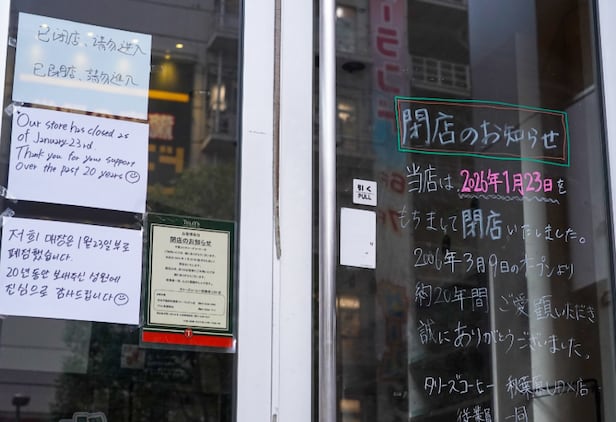 已闭店、请勿进入
已閉店、請勿進入
Our store has closed as
of January 23rd.
Thank you for your support
over the past 20 years
저희 매장은 1월 23일부로
폐점했습니다.
20년 동안 보내주신 성원에
진심으로 감사드립니다
TULLY'S
閉店のお知らせ
引く
PULL
閉店のお知らせ
当店は、2026年1月23日を
もちまして閉店いたしました。
2006年3月9日のオープンより
約20年間 ご愛顧いただき
誠にありがとうございました。
タリーズコーヒー 秋葉原UDX店
従業員 一同